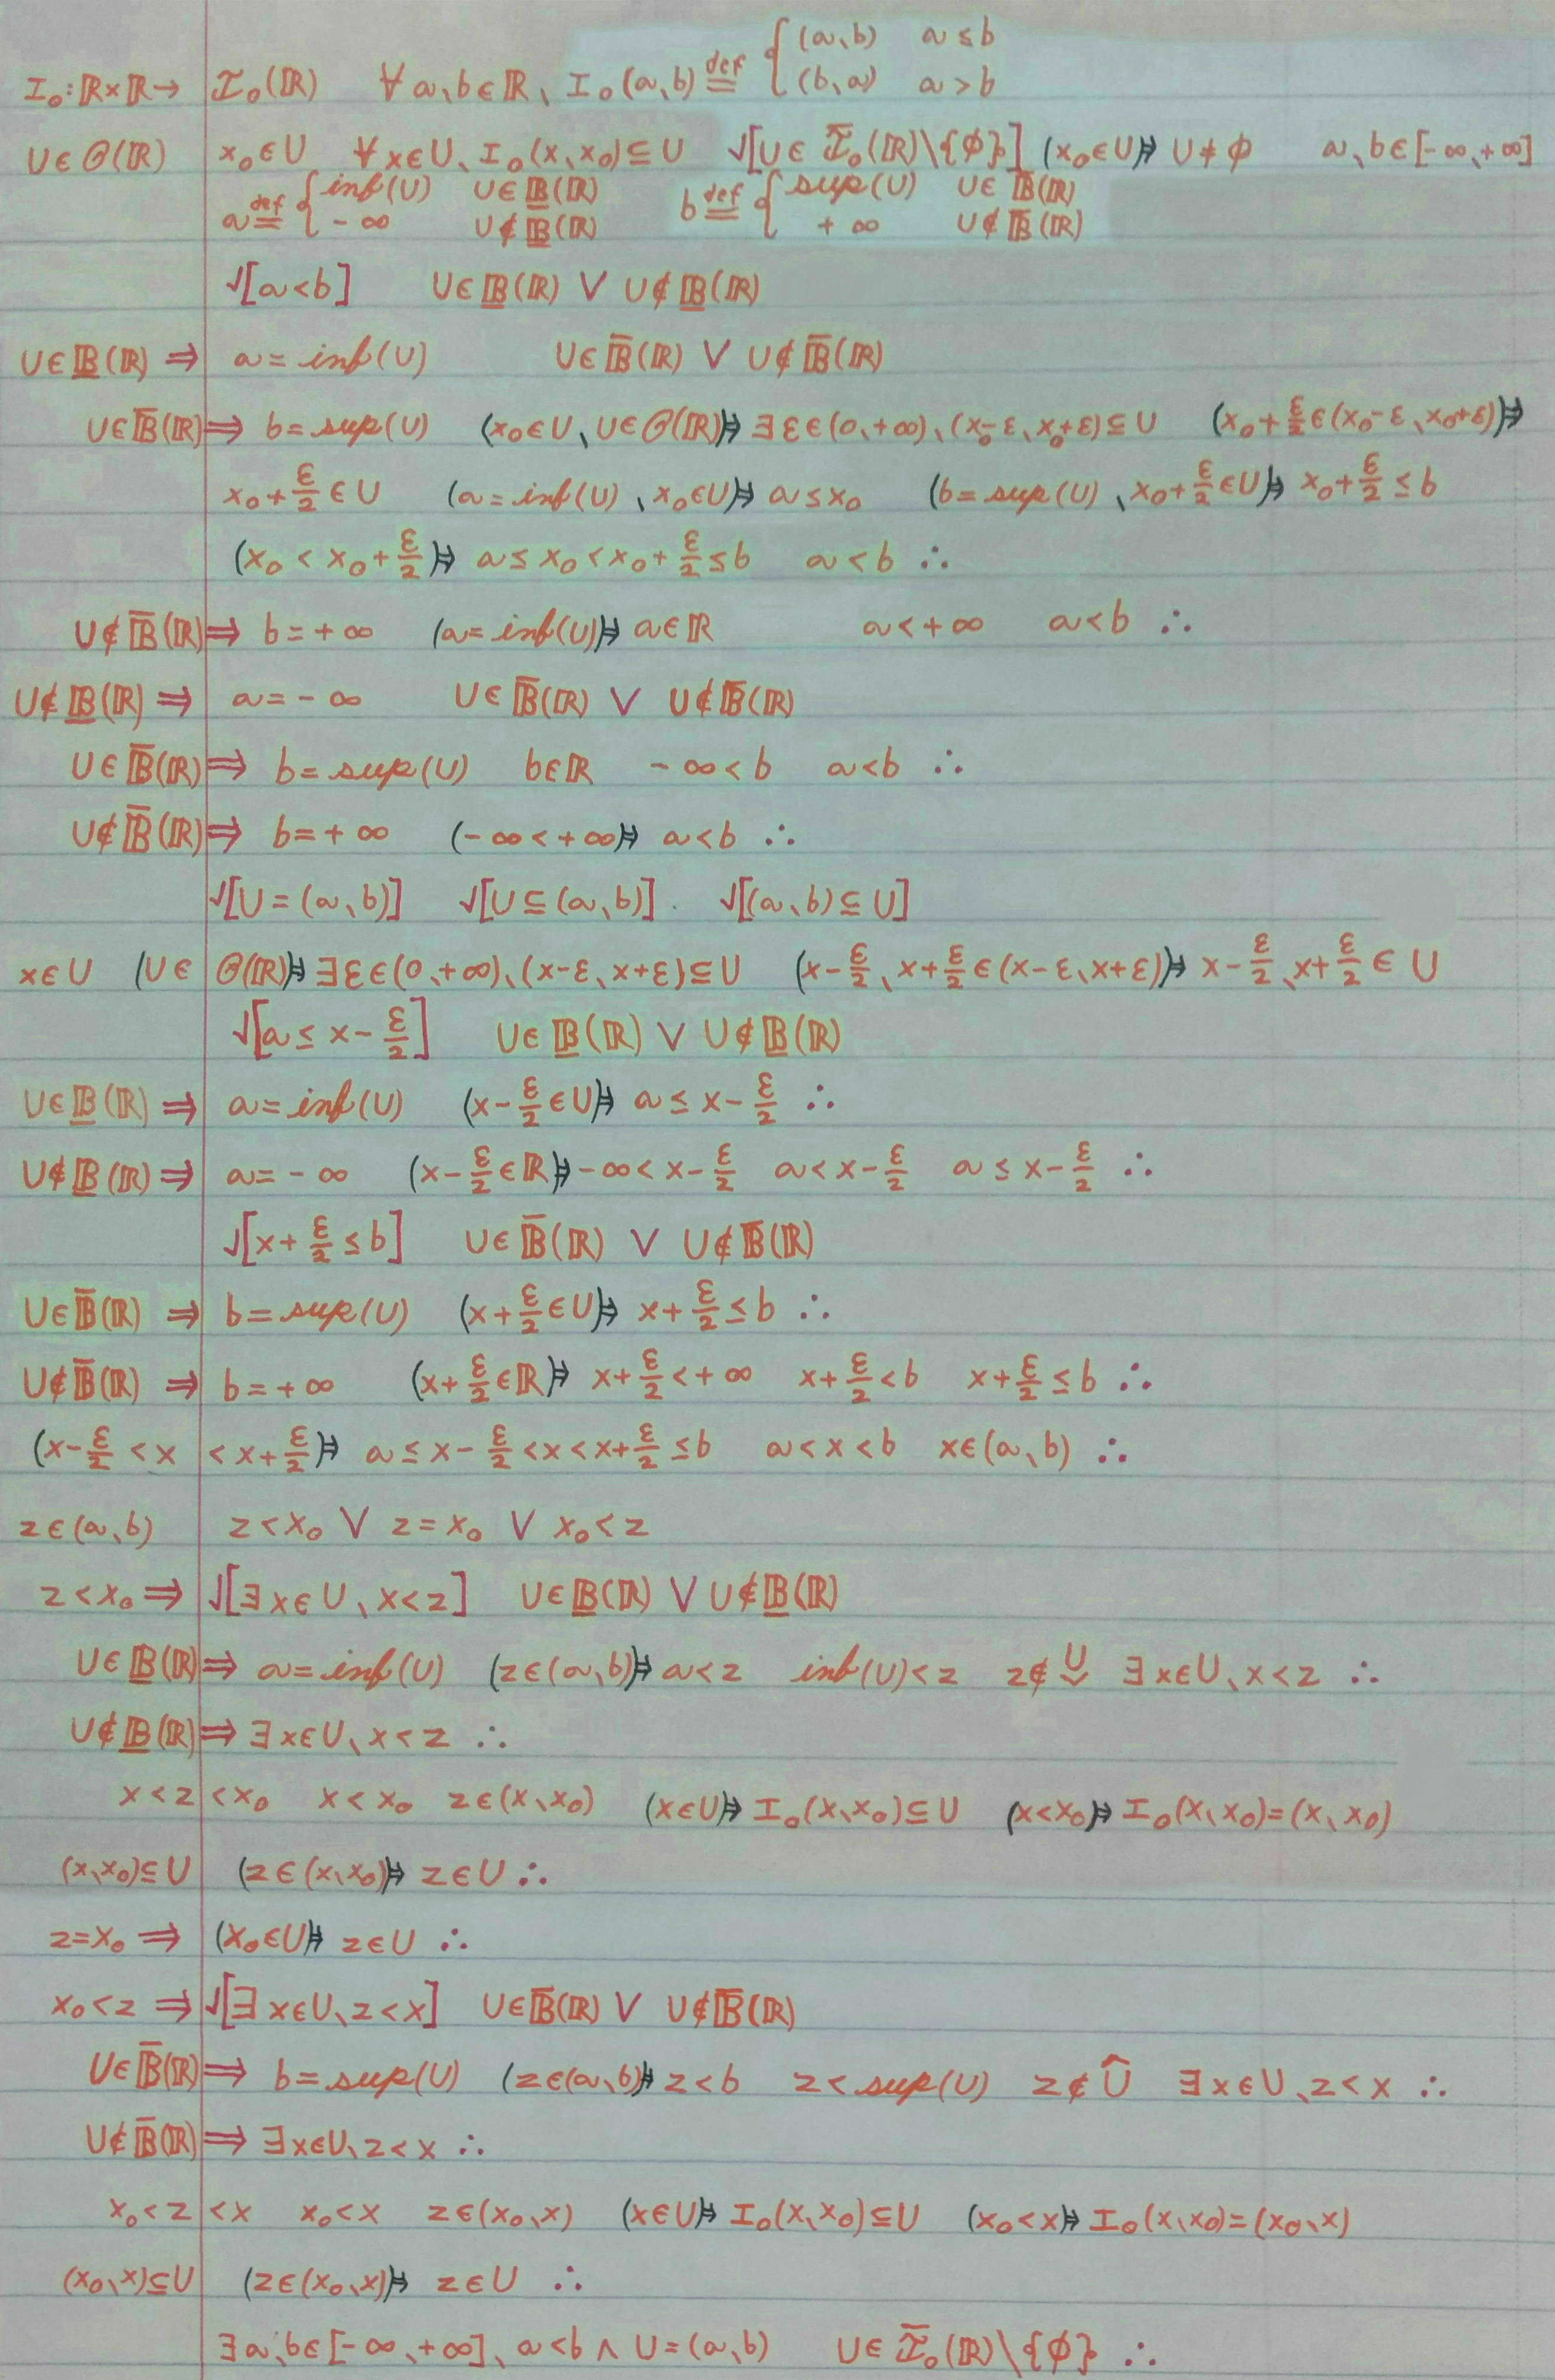 I₀:ℝ×ℝ→ ℐ₀(ℝ) ∀a、b∈ℝ、I₀(a、b) ≝ { (a、b) a≤b
(b、a) a>b
U∈𝒪(ℝ) x₀∈U ∀x∈U、I₀(x、x₀)⊆U √[U∈ℐ̅₀(ℝ)\{∅}] (x₀∈U)⇒ U≠∅ a、b∈[-∞、+∞]
a ≝ { inf(U) U∈𝔹̲(ℝ) b ≝ { sup(U) U∈𝔹̅(ℝ)
-∞ U∉𝔹̲(ℝ) +∞ U∉𝔹̅(ℝ)
√[a<b] U∈𝔹̲(ℝ) ∨ U∉𝔹̲(ℝ)
U∈𝔹̲(ℝ) ⇒ a=inf(U) U∈𝔹̅(ℝ) ∨ U∉𝔹̅(ℝ)
U∈𝔹̅(ℝ) ⇒ b=sup(U) (x₀∈U、U∈𝒪(ℝ))⇒ ∃ε∈(0、+∞)、(x₀-ε、x₀+ε)⊆U (x₀+ε/2∈(x₀-ε、x₀+ε))⇒
x₀+ε/2∈U (a=inf(U)、x₀∈U)⇒ a≤x₀ (b=sup(U)、x₀+ε/2∈U)⇒ x₀+ε/2≤b
(x₀<x₀+ε/2)⇒ a≤x₀<x₀+ε/2≤b a<b ∴
U∉𝔹̅(ℝ) ⇒ b=+∞ (a=inf(U))⇒ a∈ℝ a<+∞ a<b ∴
U∉𝔹̲(ℝ) ⇒ a=-∞ U∈𝔹̅(ℝ) ∨ U∉𝔹̅(ℝ)
U∈𝔹̅(ℝ) ⇒ b=sup(U) b∈ℝ -∞<b a<b ∴
U∉𝔹̅(ℝ) ⇒ b=+∞ (-∞<+∞)⇒ a<b ∴
√[U=(a、b)] √[U⊆(a、b)] √[(a、b)⊆U]
x∈U (U∈𝒪(ℝ))⇒ ∃ε∈(0、+∞)、(x-ε、x+ε)⊆U (x-ε/2、x+ε/2∈(x-ε、x+ε))⇒ x-ε/2、x+ε/2∈U
√[a≤x-ε/2] U∈𝔹̲(ℝ) ∨ U∉𝔹̲(ℝ)
U∈𝔹̲(ℝ) ⇒ a=inf(U) (x-ε/2∈U)⇒ a≤x-ε/2 ∴
U∉𝔹̲(ℝ) ⇒ a=-∞ (x-ε/2∈ℝ)⇒ -∞<x-ε/2 a<x-ε/2 a≤x-ε/2 ∴
√[x+ε/2≤b] U∈𝔹̅(ℝ) ∨ U∉𝔹̅(ℝ)
U∈𝔹̅(ℝ) ⇒ b=sup(U) (x+ε/2∈U)⇒ x+ε/2≤b ∴
U∉𝔹̅(ℝ) ⇒ b=+∞ (x+ε/2∈ℝ)⇒ x+ε/2<+∞ x+ε/2<b x+ε/2≤b ∴
(x-ε/2<x<x+ε/2)⇒ a≤x-ε/2<x<x+ε/2≤b a<x<b x∈(a、b) ∴
z∈(a、b) z<x₀ ∨ z=x₀ ∨ x₀<z
z<x₀ ⇒ √[∃x∈U、x<z] U∈𝔹̲(ℝ) ∨ U∉𝔹̲(ℝ)
U∈𝔹̲(ℝ) ⇒ a=inf(U) (z∈(a、b))⇒ a<z inf(U)<z z∉U̬ ∃x∈U、x<z ∴
U∉𝔹̲(ℝ) ⇒ ∃x∈U、x<z ∴
x<z<x₀ x<x₀ z∈(x、x₀) (x∈U)⇒ I₀(x、x₀)⊆U (x<x₀)⇒ I₀(x、x₀)=(x、x₀)
(x、x₀)⊆U (z∈(x、x₀))⇒ z∈U ∴
z=x₀ ⇒ (x₀∈U)⇒ z∈U ∴
x₀<z ⇒ √[∃x∈U、z<x] U∈𝔹̅(ℝ) ∨ U∉𝔹̅(ℝ)
U∈𝔹̅(ℝ) ⇒ b=sup(U) (z∈(a、b))⇒ z<b z<sup(U) z∉Û ∃x∈U、z<x ∴
U∉𝔹̅(ℝ) ⇒ ∃x∈U、z<x ∴
x₀<z<x x₀<x z∈(x₀、x) (x∈U)⇒ I₀(x、x₀)⊆U (x₀<x)⇒ I₀(x、x₀)=(x₀、x)
(x₀、x)⊆U (z∈(x₀、x))⇒ z∈U ∴
∃a、b∈[-∞、+∞]、a<b ∧ U=(a、b) U∈ℐ̅₀(ℝ)\{∅} ∴